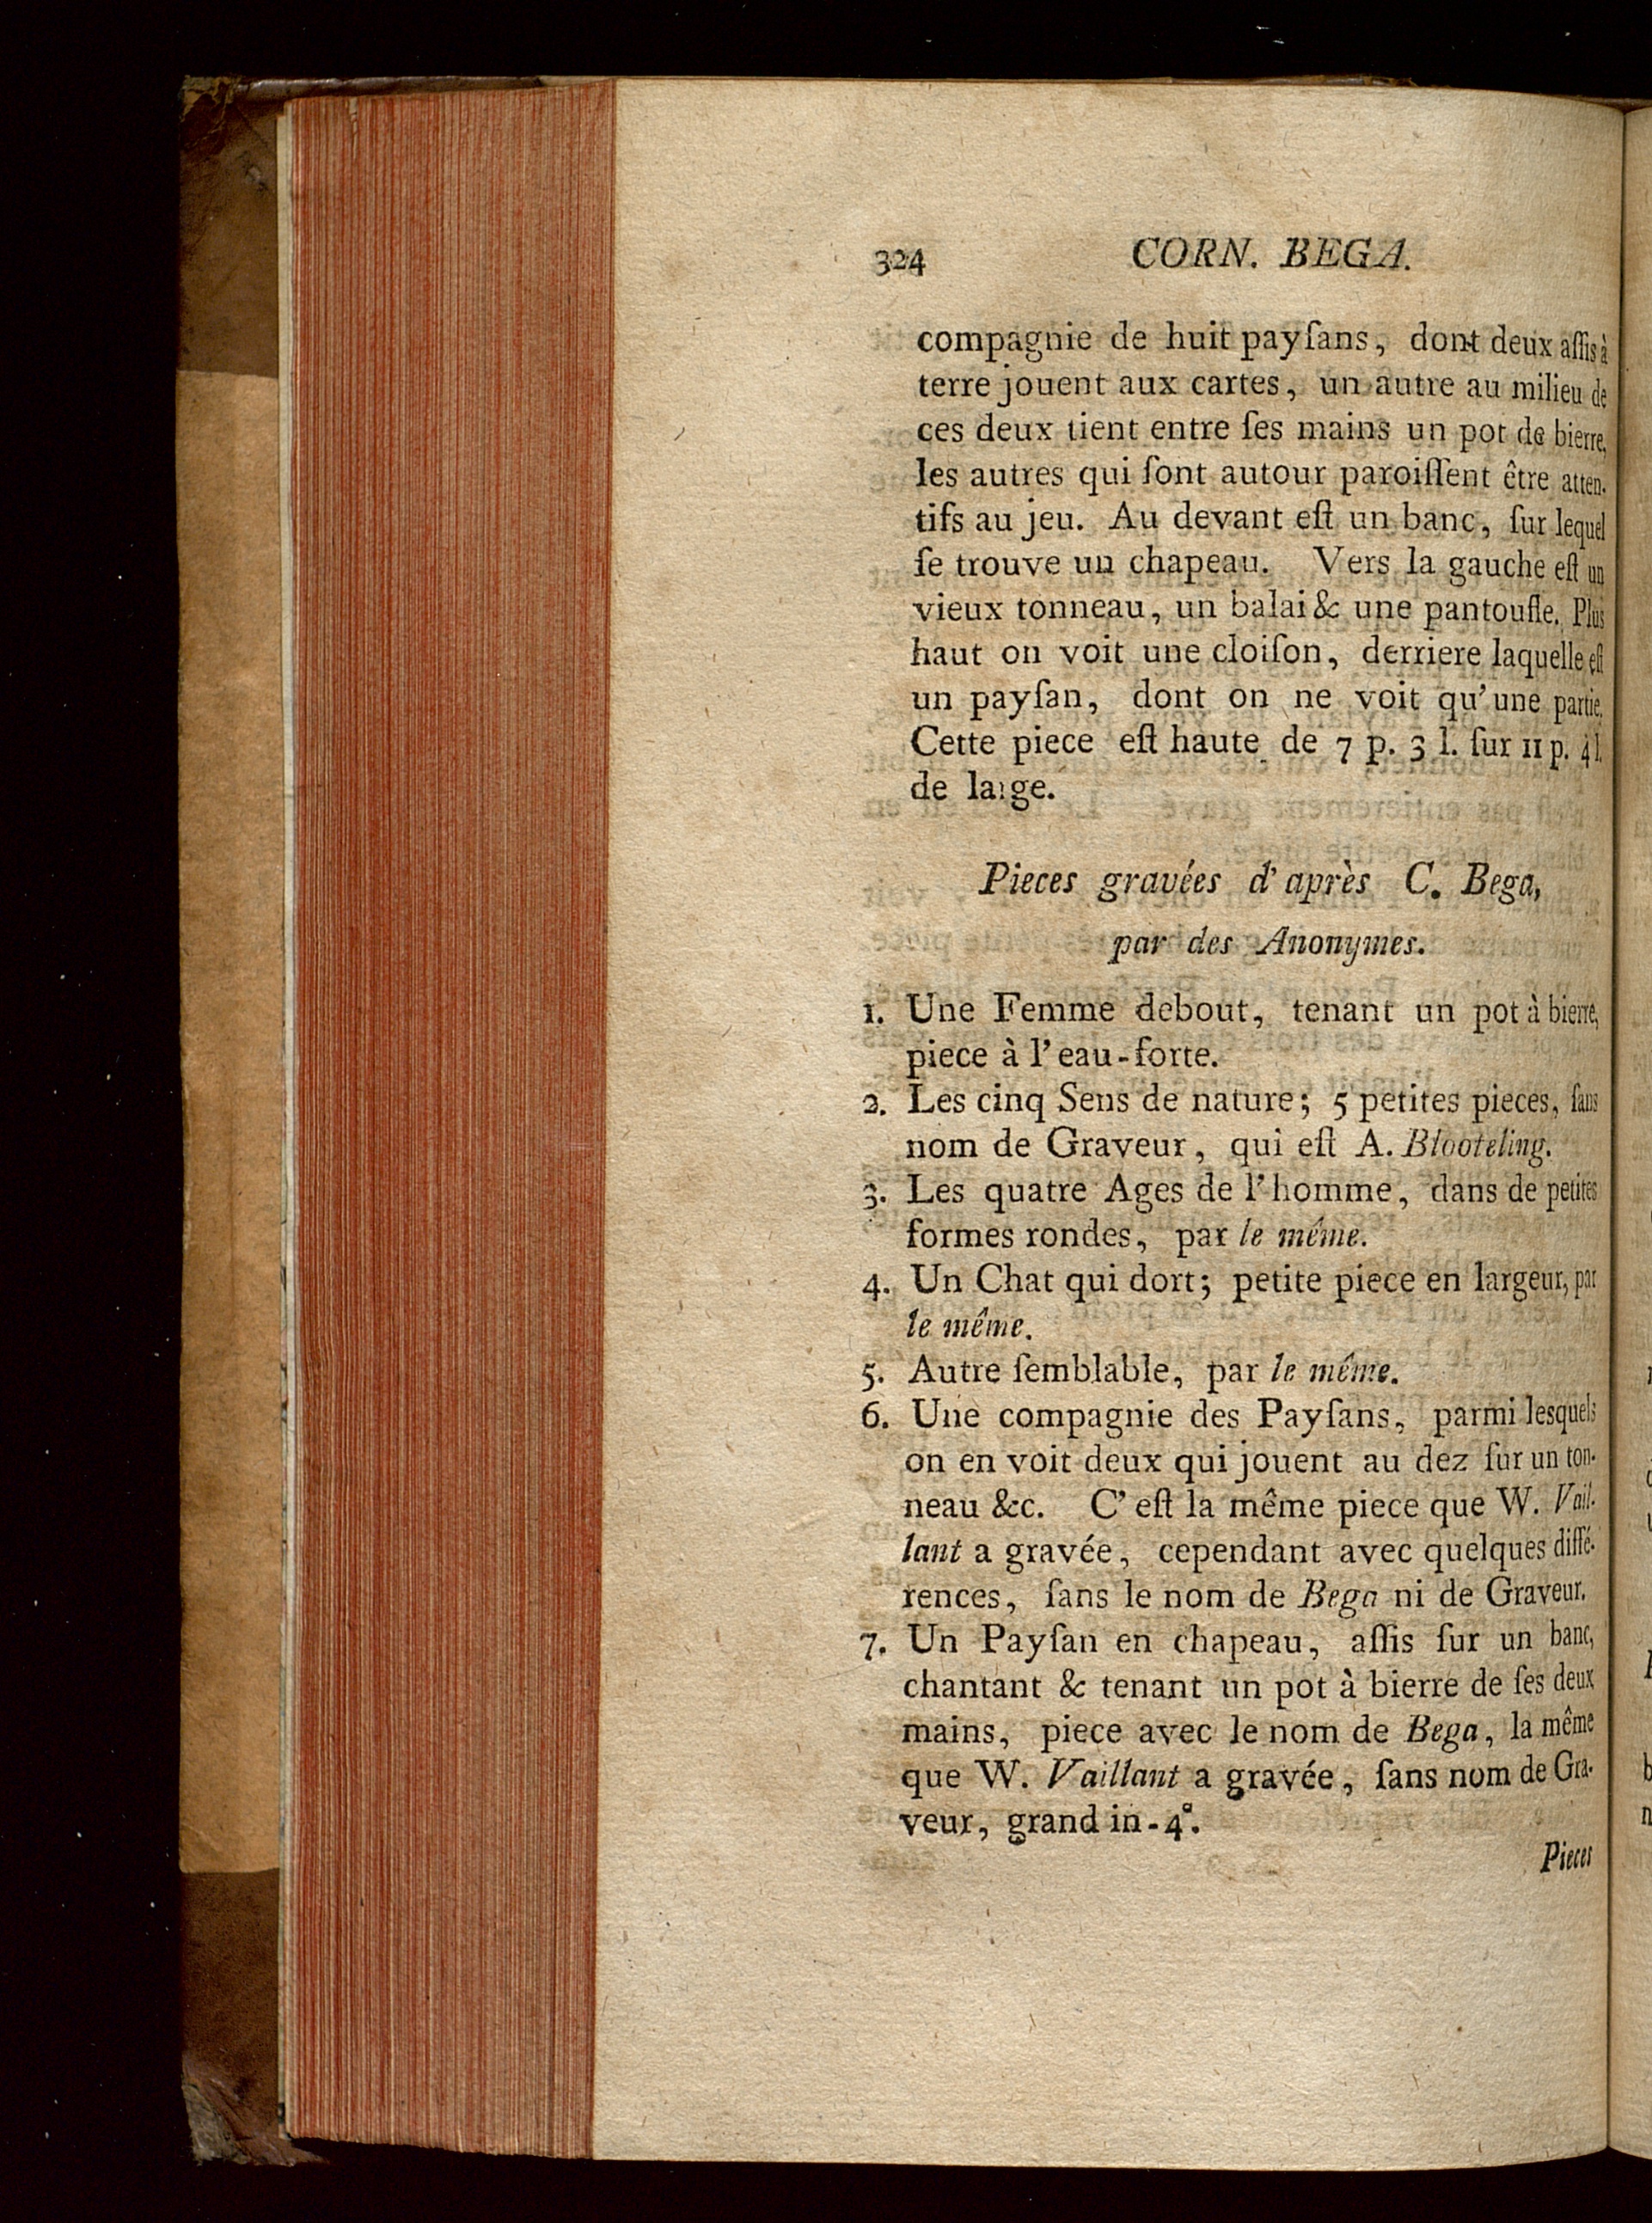 324 CORN. BEGA.
compagnie de huit payſans, dont deux aſſis à
terre jouent aux cartes, un autre au milieu de
ces deux tient entre ſes mains un pot de bierre,
les autres qui ſont autour paroiſſent être atten-
tifs au jeu. Au devant eſt un banc, ſur lequel
ſe trouve un chapeau. Vers la gauche eſt un
vieux tonneau, un balai & une pantoufle. Plus
haut on voit une cloiſon, derriere laquelle eſt
un payſan, dont on ne voit qu'une partie.
Cette piece eſt haute de 7 p. 3 l. ſur 11 p. 4 l.
de large.
Pieces gravées d'après C. Bega,
par des Anonymes.
1. Une Femme debout, tenant un pot à bierre,
piece à l'eau-forte.
2. Les cinq Sens de nature; 5 petites pieces, ſans
nom de Graveur, qui eſt A. Blooteling.
3. Les quatre Ages de l'homme, dans de petites
formes rondes, par le même.
4. Un Chat qui dort; petite piece en largeur, par
le même.
5. Autre ſemblable, par le même.
6. Une compagnie des Payſans, parmi lesquels
on en voit deux qui jouent au dez ſur un ton-
neau &c. C'eſt la même piece que W. Vail-
lant a gravée, cependant avec quelques diffé-
rences, ſans le nom de Bega ni de Graveur.
7. Un Payſan en chapeau, aſſis ſur un banc,
chantant & tenant un pot à bierre de ſes deux
mains, piece avec le nom de Bega, la même
que W. Vaillant a gravée, ſans nom de Gra-
veur, grand in-4°.
Pieces